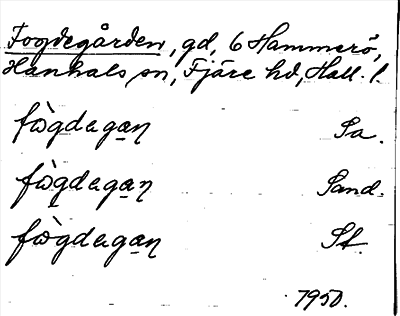 Fogdegården, gd, 6 Hammerö,
Hanhals sn, Fjäre hd, Hall. l.
fò̀gdegan̥ Sa.
fò̀gdegan̥ Sand.
fò̀gdegan̥ St.
1950.